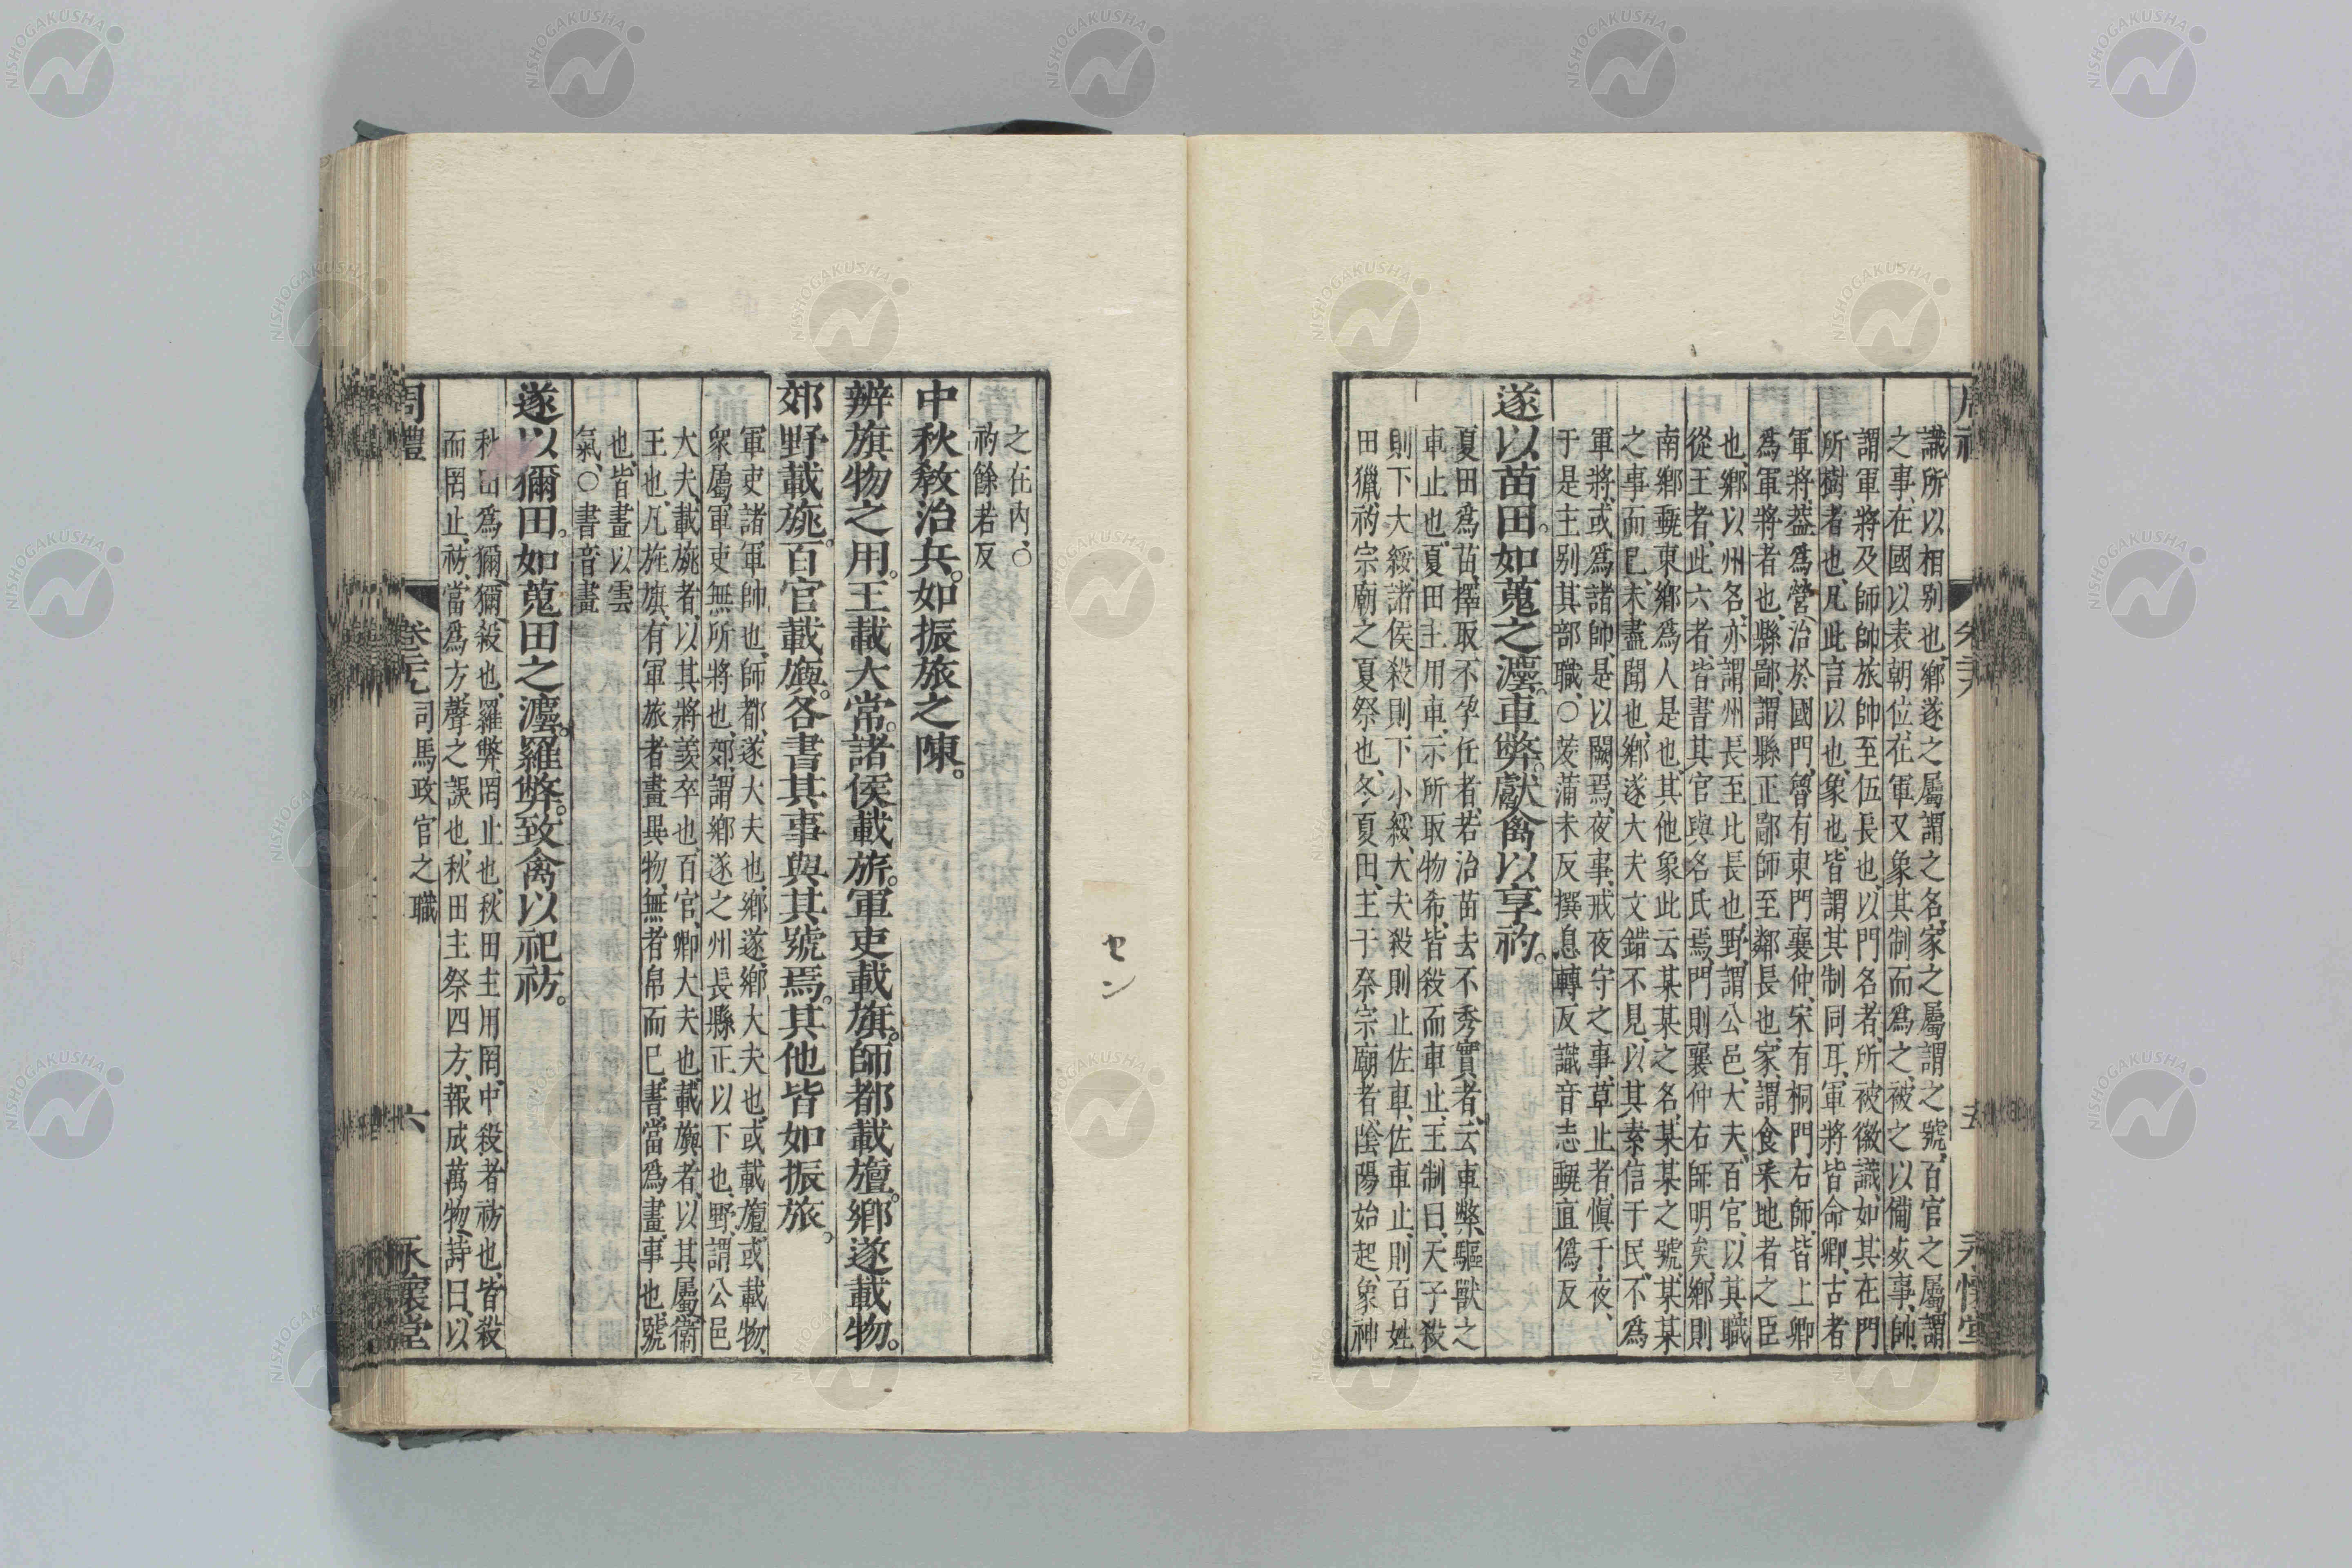 識所以相別也、鄉遂之屬謂之名、家之屬謂之號、百官之屬謂
之事、在國以表朝位、在軍又象其制而爲之、被之以備死事、帥、
謂軍將及師帥、旅帥至伍長也、以門名者、所被徽識、如其在門
所樹者也、凡此言以也、象也、皆謂其制同耳、軍將皆命卿、古者
軍將、葢爲營治於國門、魯有東門襄仲、宋有桐門右師、皆上卿
爲軍將者也、縣鄙、謂縣正鄙師至鄰長也、家、謂食采地者之臣
也、鄉以州名、亦謂州長至比長也、野、謂公邑、大夫、百官、以其職
從王者、此六者、皆書其官與名氏焉、門則襄仲右師明矣、鄉則
南鄉甀東鄉爲人是也、其他象此云某某之名、某某之號、某某
之事而已、未盡聞也、鄉遂大夫文錯不見、以其素信于民、不爲
軍將、或爲諸帥、是以闕焉、夜事、戒夜守之事、草止者、愼于夜、
于是主別其部職、○茇蒲末反撰息轉反識音志甀直僞反
遂以苗田。如蒐之灋。車弊。獻禽以享礿。
夏田爲苗、擇取不孕任者、若治苗去不秀實者、云車弊、驅獸之
車止也、夏田主用車、示所取物希、皆殺而車止、王制曰、天子殺
則下大綏、諸侯殺則下小綏、大夫殺則止佐車、佐車止、則百姓
田獵、礿、宗廟之夏祭也、冬夏田、主于祭宗廟者、陰陽始起、象神
之在內、○
礿餘若反
中秋敎治兵。如振旅之陳。
辨旗物之用。王載大常。諸侯載旂。軍吏載旗。師都載旜。鄉遂載物。
郊野載旐。百官載旟。各書其事與其號焉。其他皆如振旅。
軍吏、諸軍帥也、師都、遂大夫也、鄉遂、鄉大夫也、或載旜、或載物、
衆屬軍吏無所將也、郊、謂鄉遂之州長縣正以下也、野、謂公邑
大夫、載旐者、以其將羨卒也、百官、卿大夫也、載旟者、以其屬衞
王也、凡旌旗、有軍旅者畫異物、無者帛而已、書當爲畫、事也、號
也、皆畫以雲
氣、○書音畫
遂以獮田。如蒐田之灋。羅弊。致禽以祀祊。
秋田爲獮、獮、殺也、羅弊、罔止也、秋田主用罔、中殺者祊也、皆殺
而罔止、祊、當爲方、聲之誤也、秋田主祭四方、報成萬物、詩曰、以
周禮
司馬政官之職
六
永懷堂
セン
NISHOGAKUSHA